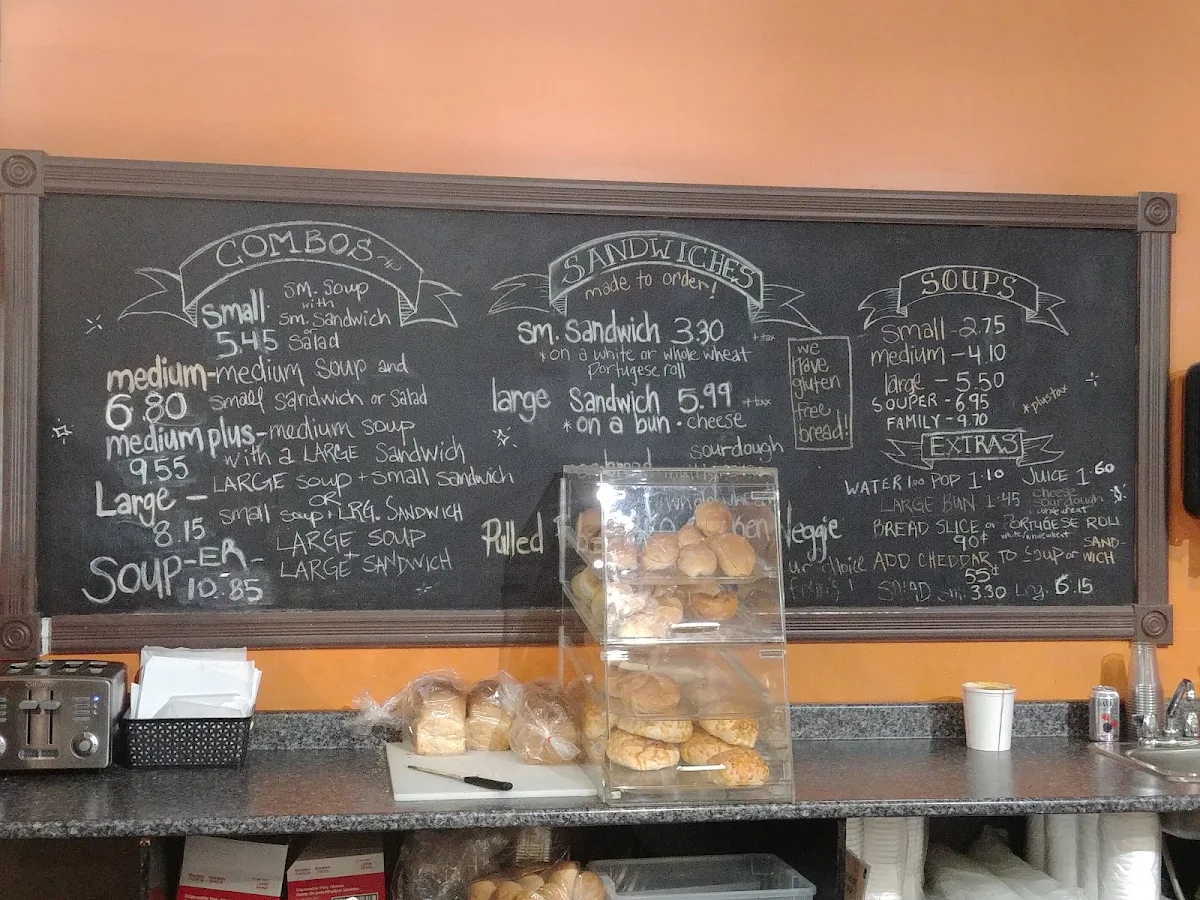 COMBOS
Small sm. Soup
with
sm. Sandwich
or
5.45 Salad
medium-medium Soup and
6.80 Small Sandwich or Salad
medium plus-medium soup
9.55 with a LARGE Sandwich
Large - LARGE Soup + small sandwich
OR
8.15 small soup + LRG. SANDWICH
SOUP-ER- LARGE SOUP
10.85 LARGE SANDWICH
SANDWICHES
made to order!
sm. Sandwich 3.30 + tax
*on a white or whole wheat
Portugese roll
large Sandwich 5.99 + tax
*on a bun • cheese
sourdough
bread
Pulled
Veggie
we
have
gluten
free
bread!
SOUPS
Small - 2.75
medium - 4.10
large - 5.50
SOUPER - 6.95
FAMILY - 9.70
*plus tax
EXTRAS
WATER 1.00 POP 1.10 JUICE 1.60
LARGE BUN 1.45 cheese
sourdough
whole wheat
BREAD SLICE or PORTUGESE ROLL
90¢ white/wholewheat
ADD CHEDDAR TO SOUP or SANDWICH
55¢
SALAD sm. 3.30 Lrg. 6.15